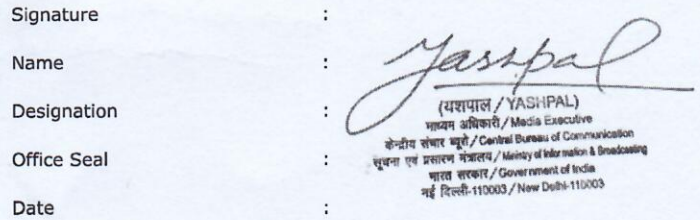 Signature :
Yashpal
Name :
Designation :
(यशपाल / YASHPAL)
माध्यम अधिकारी / Media Executive
केन्द्रीय संचार ब्यूरो / Central Bureau of Communication
Office Seal :
सूचना एवं प्रसारण मंत्रालय / Ministry of Information & Broadcasting
भारत सरकार / Government of India
नई दिल्ली-110003 / New Delhi-110003
Date :